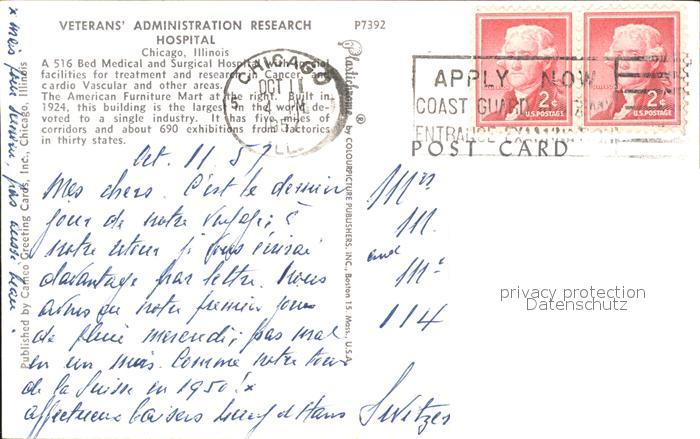 VETERANS' ADMINISTRATION RESEARCH
HOSPITAL
Chicago, Illinois
A 516 Bed Medical and Surgical Hospital with special
facilities for treatment and research in Cancer, and
cardio Vascular and other areas.
The American Furniture Mart at the right. Built in
1924, this building is the largest in the world de-
voted to a single industry. It has five miles of
corridors and about 690 exhibitions from factories
in thirty states.
P7392
CHICAGO
OCT 11
PM
ILL.
2¢
U.S. POSTAGE
2¢
U.S. POSTAGE
APPLY NOW
COAST GUARD
ENTRANCE
POST CARD
Plastichrome ® by COLOURPICTURE PUBLISHERS, INC., Boston 15, Mass., U.S.A.
Published by Cameo Greeting Cards, Inc., Chicago, Illinois
Oct. 11 57
Mes chers. C'est le dernier
jour de notre voyage; à
notre retour je vous écrirai
davantage par lettre. Nous
avons eu notre premier jour
de pluie mercredi; pas mal
en un mois. Comme notre tour
de la Suisse en 1950! x
affectueux baisers et Hans
x mais
pas aussi beau!
and
114
Switzer
privacy protection
Datenschutz